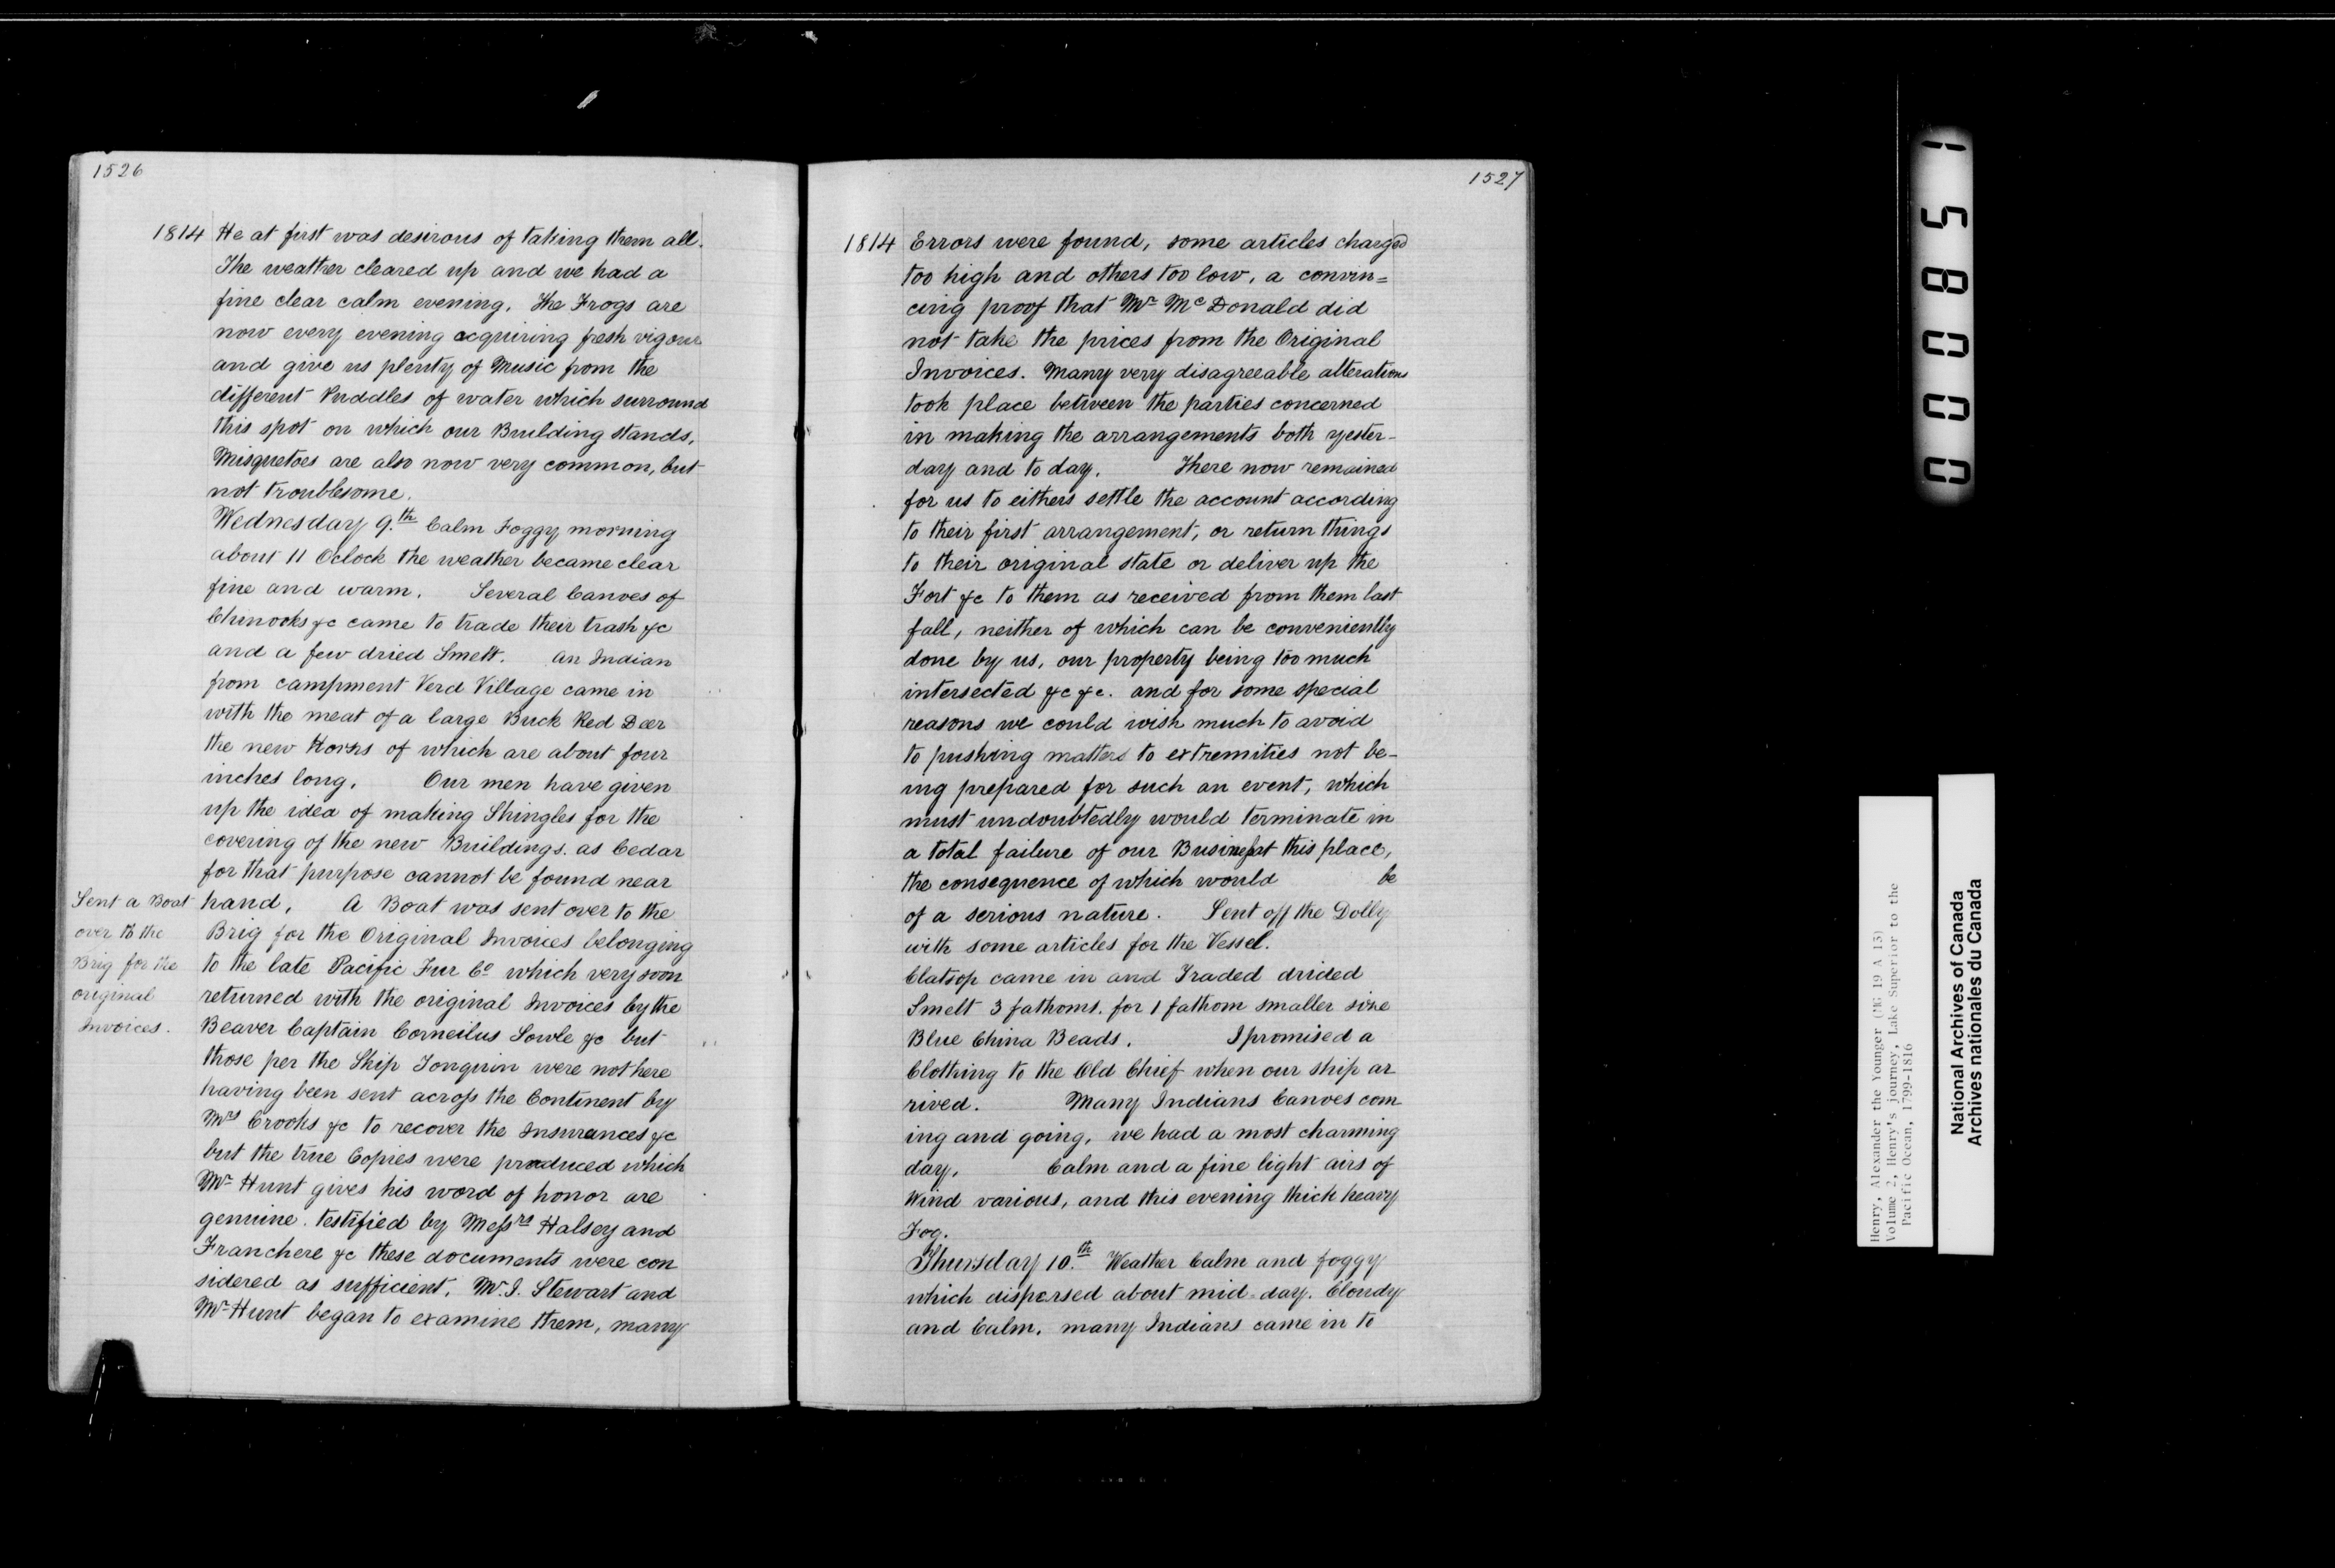 1526
1814 He at first was desirous of taking them all.
The weather cleared up and we had a
fine clear calm evening. The Frogs are
now every evening acquiring fresh vigour
and give us plenty of Music from the
different Puddles of water which surround
this spot on which our Building stands,
Misquetoes are also now very common, but
not troublesome.
Wednesday 9.th Calm Foggy morning
about 11 Oclock the weather became clear
fine and warm. Several Canoes of
Chinooks &c came to trade their trash &c
and a few dried Smelt. An Indian
from campment Verd Village came in
with the meat of a large Buck Red Deer
the new Horns of which are about four
inches long. Our men have given
up the idea of making Shingles for the
covering of the new Buildings. as Cedar
for that purpose cannot be found near
hand. A Boat was sent over to the
Brig for the Original Invoices belonging
to the late Pacific Fur Co which very soon
returned with the original Invoices by the
Beaver Captain Corneilus Sowle &c but
those per the Ship Tonquin were not here
having been sent across the Continent by
Mrs Crooks &c to recover the Insurances &c
but the true Copies were produced which
Mr Hunt gives his word of honor are
genuine. testified by Messrs Halsey and
Franchere &c these documents were con
sidered as sufficient. Mr. J. Stewart and
Mr Hunt began to examine them, many
Sent a Boat
over to the
Brig for the
original
Invoices.
1527
1814 Errors were found, some articles charged
too high and others too low, a convin=
cing proof that Mr McDonald did
not take the prices from the Original
Invoices. Many very disagreeable alterations
took place between the parties concerned
in making the arrangements both yester-
day and to day. There now remained
for us to eithers settle the account according
to their first arrangement, or return things
to their original state or deliver up the
Fort &c to them as received from them last
fall, neither of which can be conveniently
done by us, our property being too much
intersected &c &c. and for some special
reasons we could wish much to avoid
to pushing matters to extremities not be-
ing prepared for such an event, which
must undoubtedly would terminate in
a total failure of our Business at this place,
the consequence of which would be
of a serious nature. Sent off the Dolly
with some articles for the Vessel.
Clatsop came in and Traded drided
Smelt 3 fathoms. for 1 fathom smaller size
Blue China Beads. I promised a
Clothing to the Old Chief when our ship ar
rived. Many Indians Canoes com
ing and going, we had a most charming
day. Calm and a fine light airs of
Wind various, and this evening thick heavy
Fog.
Thursday 10.th Weather Calm and foggy
which dispersed about mid-day. Cloudy
and Calm. many Indians came in to
000851
Henry, Alexander the Younger (MG 19 A 13)
Volume 2, Henry's journey, Lake Superior to the
Pacific Ocean, 1799-1816
National Archives of Canada
Archives nationales du Canada